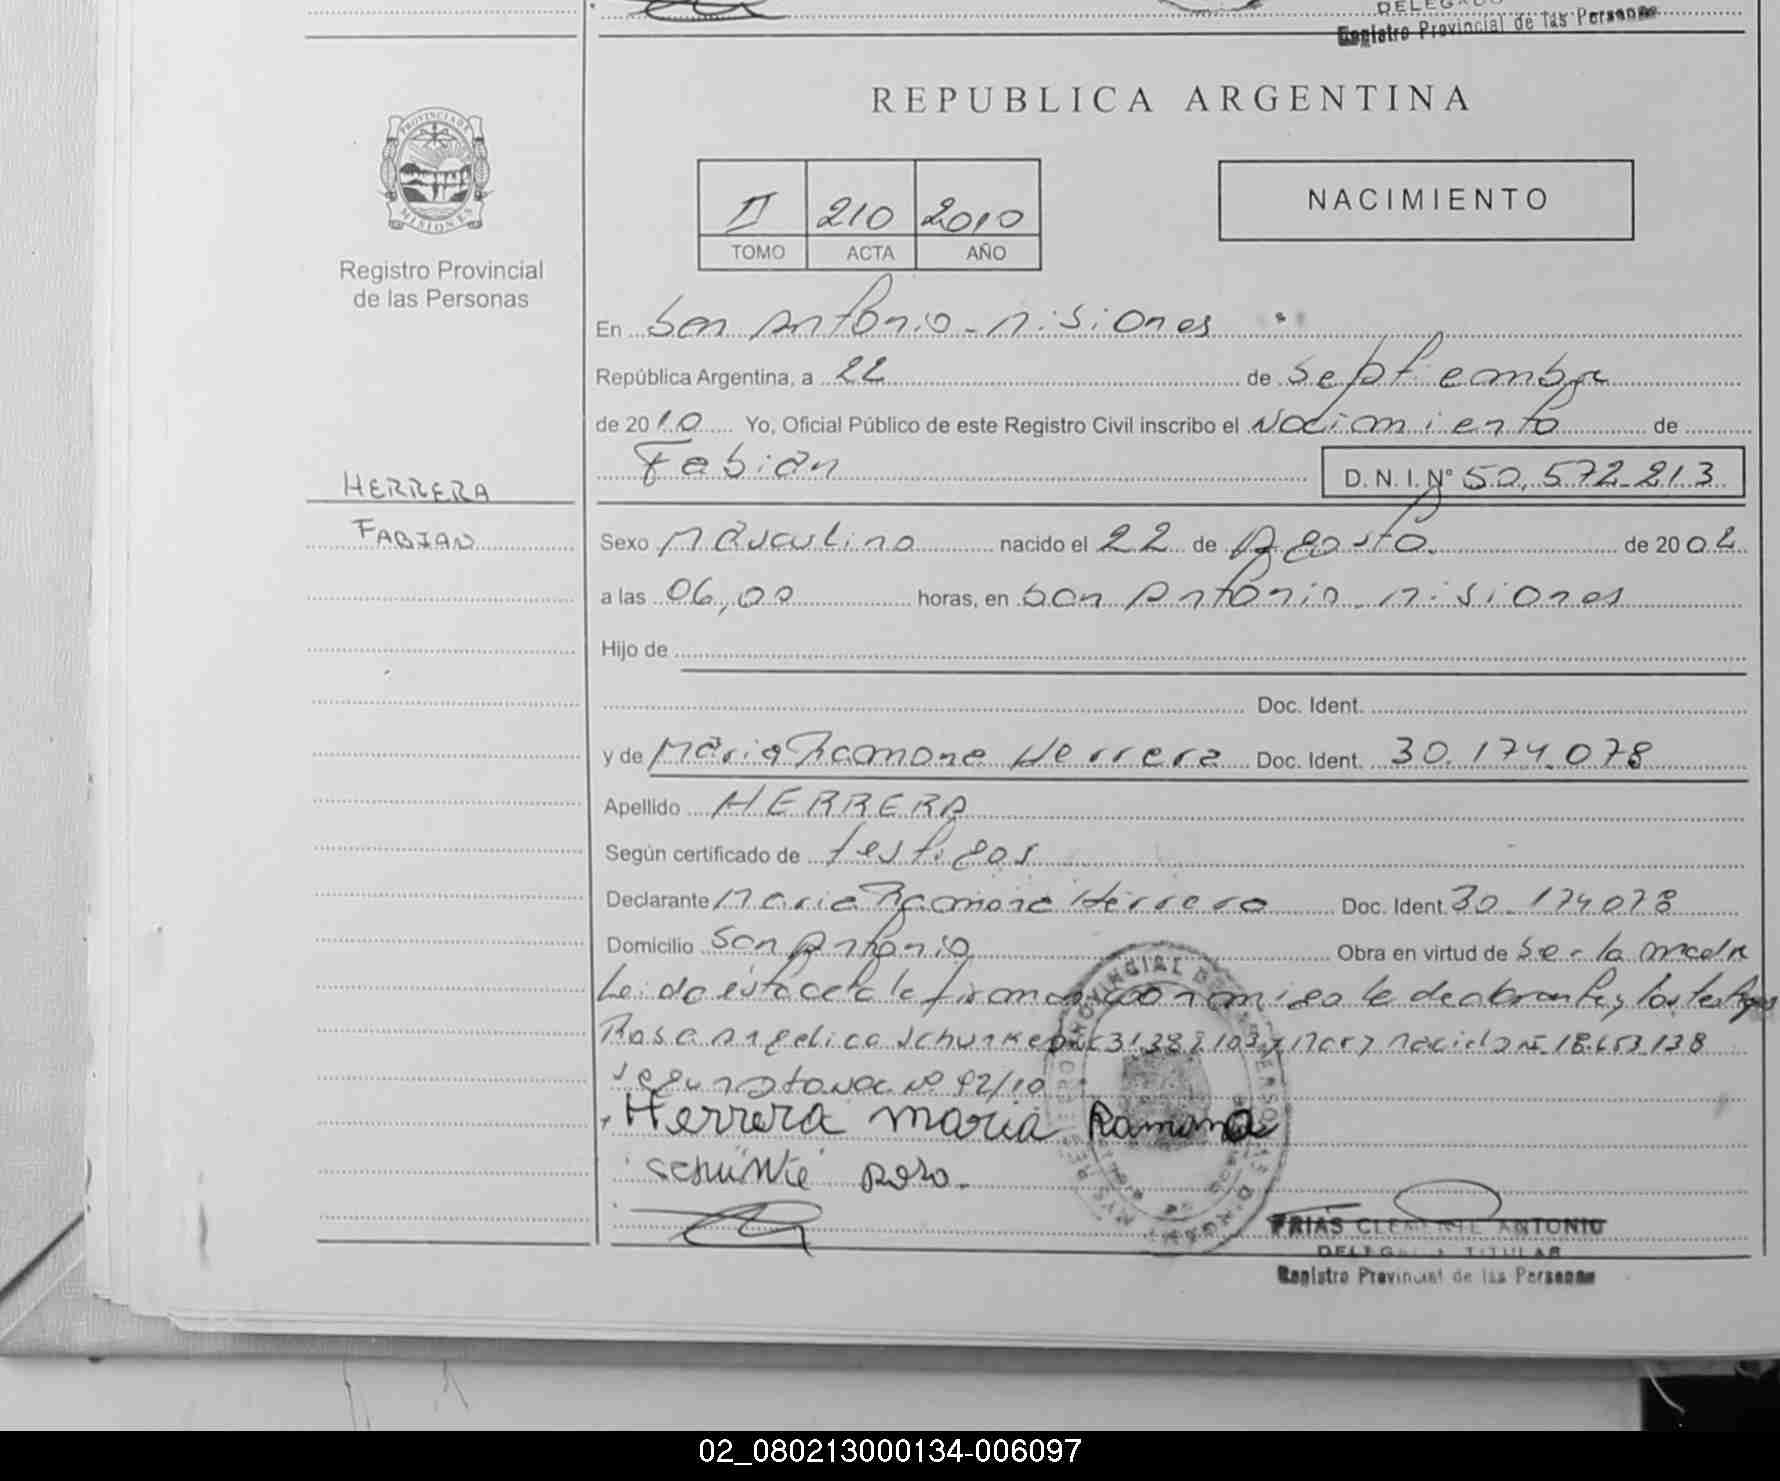 DELEGADO
Registro Provincial de las Personas
REPUBLICA ARGENTINA
PROVINCIA DE
MISIONES
Registro Provincial
de las Personas
II 210 2010
TOMO ACTA AÑO
NACIMIENTO
En San Antonio - Misiones
República Argentina, a 22 de septiembre
de 2010 Yo, Oficial Público de este Registro Civil inscribo el Nacimiento de
Fabián D. N. I. Nº 50.572.213
HERRERA
FABIAN
Sexo Masculino nacido el 22 de Agosto de 2002
a las 06,00 horas, en San Antonio - Misiones
Hijo de
Doc. Ident.
y de Maria Ramona Herrera Doc. Ident. 30.174.078
Apellido HERRERA
Según certificado de testigos
Declarante Maria Ramona Herrera Doc. Ident. 30.174.078
Domicilio San Antonio Obra en virtud de Ser la madre
Leida esta acta la firman conmigo la declarante y los testigos
Rosa Angelica Schunke 31.388.103 y
92/10
Herrera maria Ramona
Schunke Rosa.
FRIAS CLEMENTE ANTONIO
DELEGADO TITULAR
Registro Provincial de las Personas
02_080213000134-006097